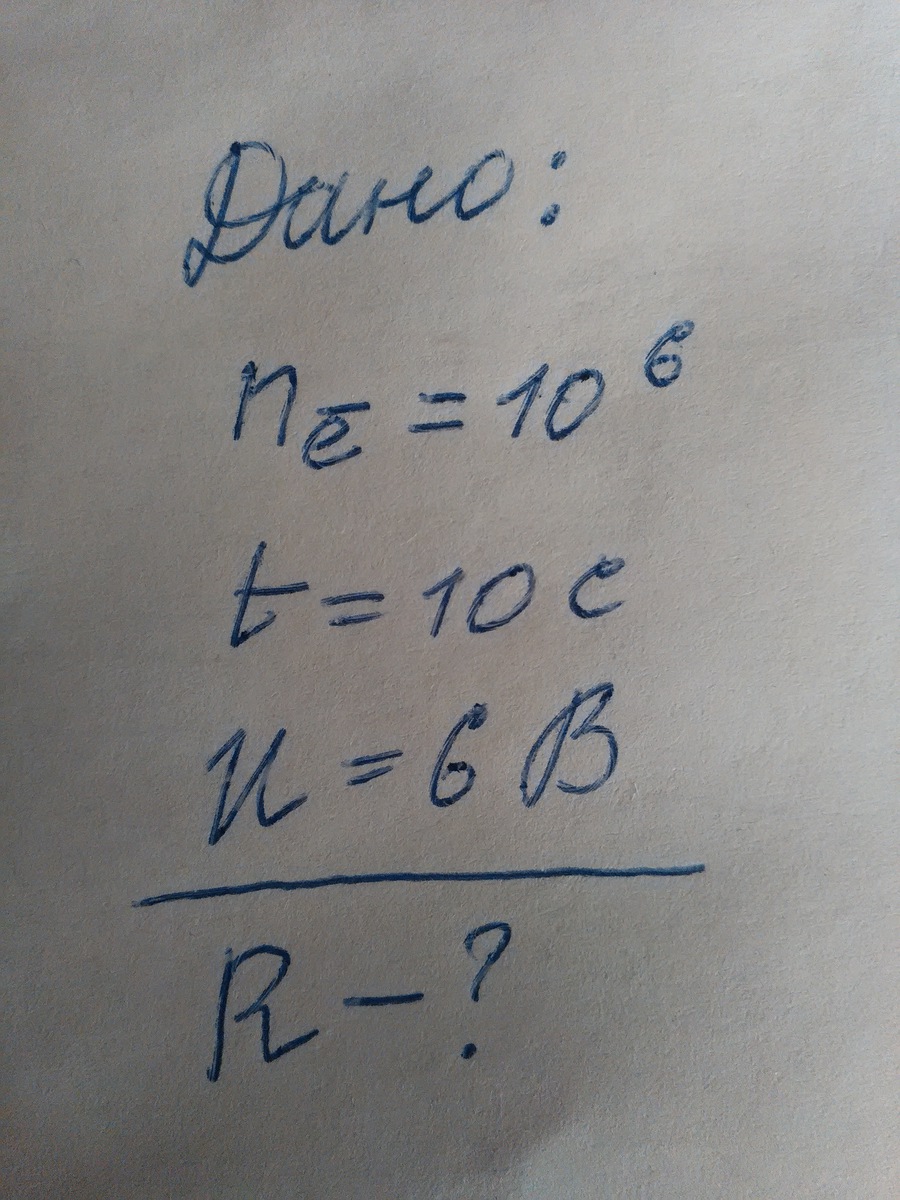 Дано:
nē = 10⁶
t = 10 с
U = 6 В
R – ?